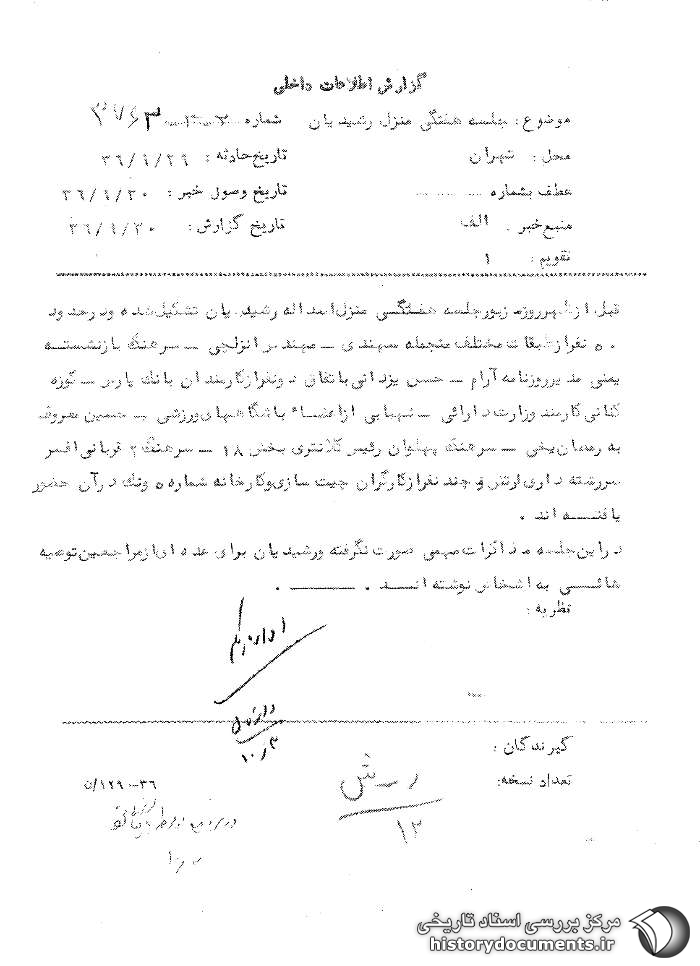 گزارش اطلاعات داخلی
موضوع : جلسه هفتگی منزل رشیدیان شماره
محل : تهران تاریخ حادثه : ۳۶/۹/۲۹
عطف بشماره تاریخ وصول خبر : ۳۶/۹/۳۰
منبع خبر . الف تاریخ گزارش : ۳۶/۹/۳۰
تقویم : ۱
قبل از ظهر روز مزبور جلسه هفتگی منزل اسداله رشیدیان تشکیل شده و در حدود
۵۰ نفر از طبقات مختلف منجمله سهندی - مهندس انزلچی - سرهنگ بازنشسته
یمنی مدیر روزنامه آرام - حسن یزدانی باتفاق دو نفر از کارمندان بانک پارس -
کنانی کارمند وزارت دارائی - از اعضاء باشگاههای ورزشی - حسین معروف
به رمضان یخی - سرهنگ پهلوان رئیس کلانتری بخش ۱۸ - سرهنگ ۲ قربانی افسر
سررشته داری ارتش و چند نفر از کارگران چیت سازی و کارخانه شماره ۵ ونک در آن حضور
یافته اند .
در این جلسه مذاکرات مهمی صورت نگرفته و رشیدیان برای عده ای از مراجعین توصیه
هائی به اشخاص نوشته اند .
نظریه :
گیرندگان :
تعداد نسخه :
۳۶-۱۲۹۰/ن
۱۲
مرکز بررسی اسناد تاریخی
historydocuments.ir